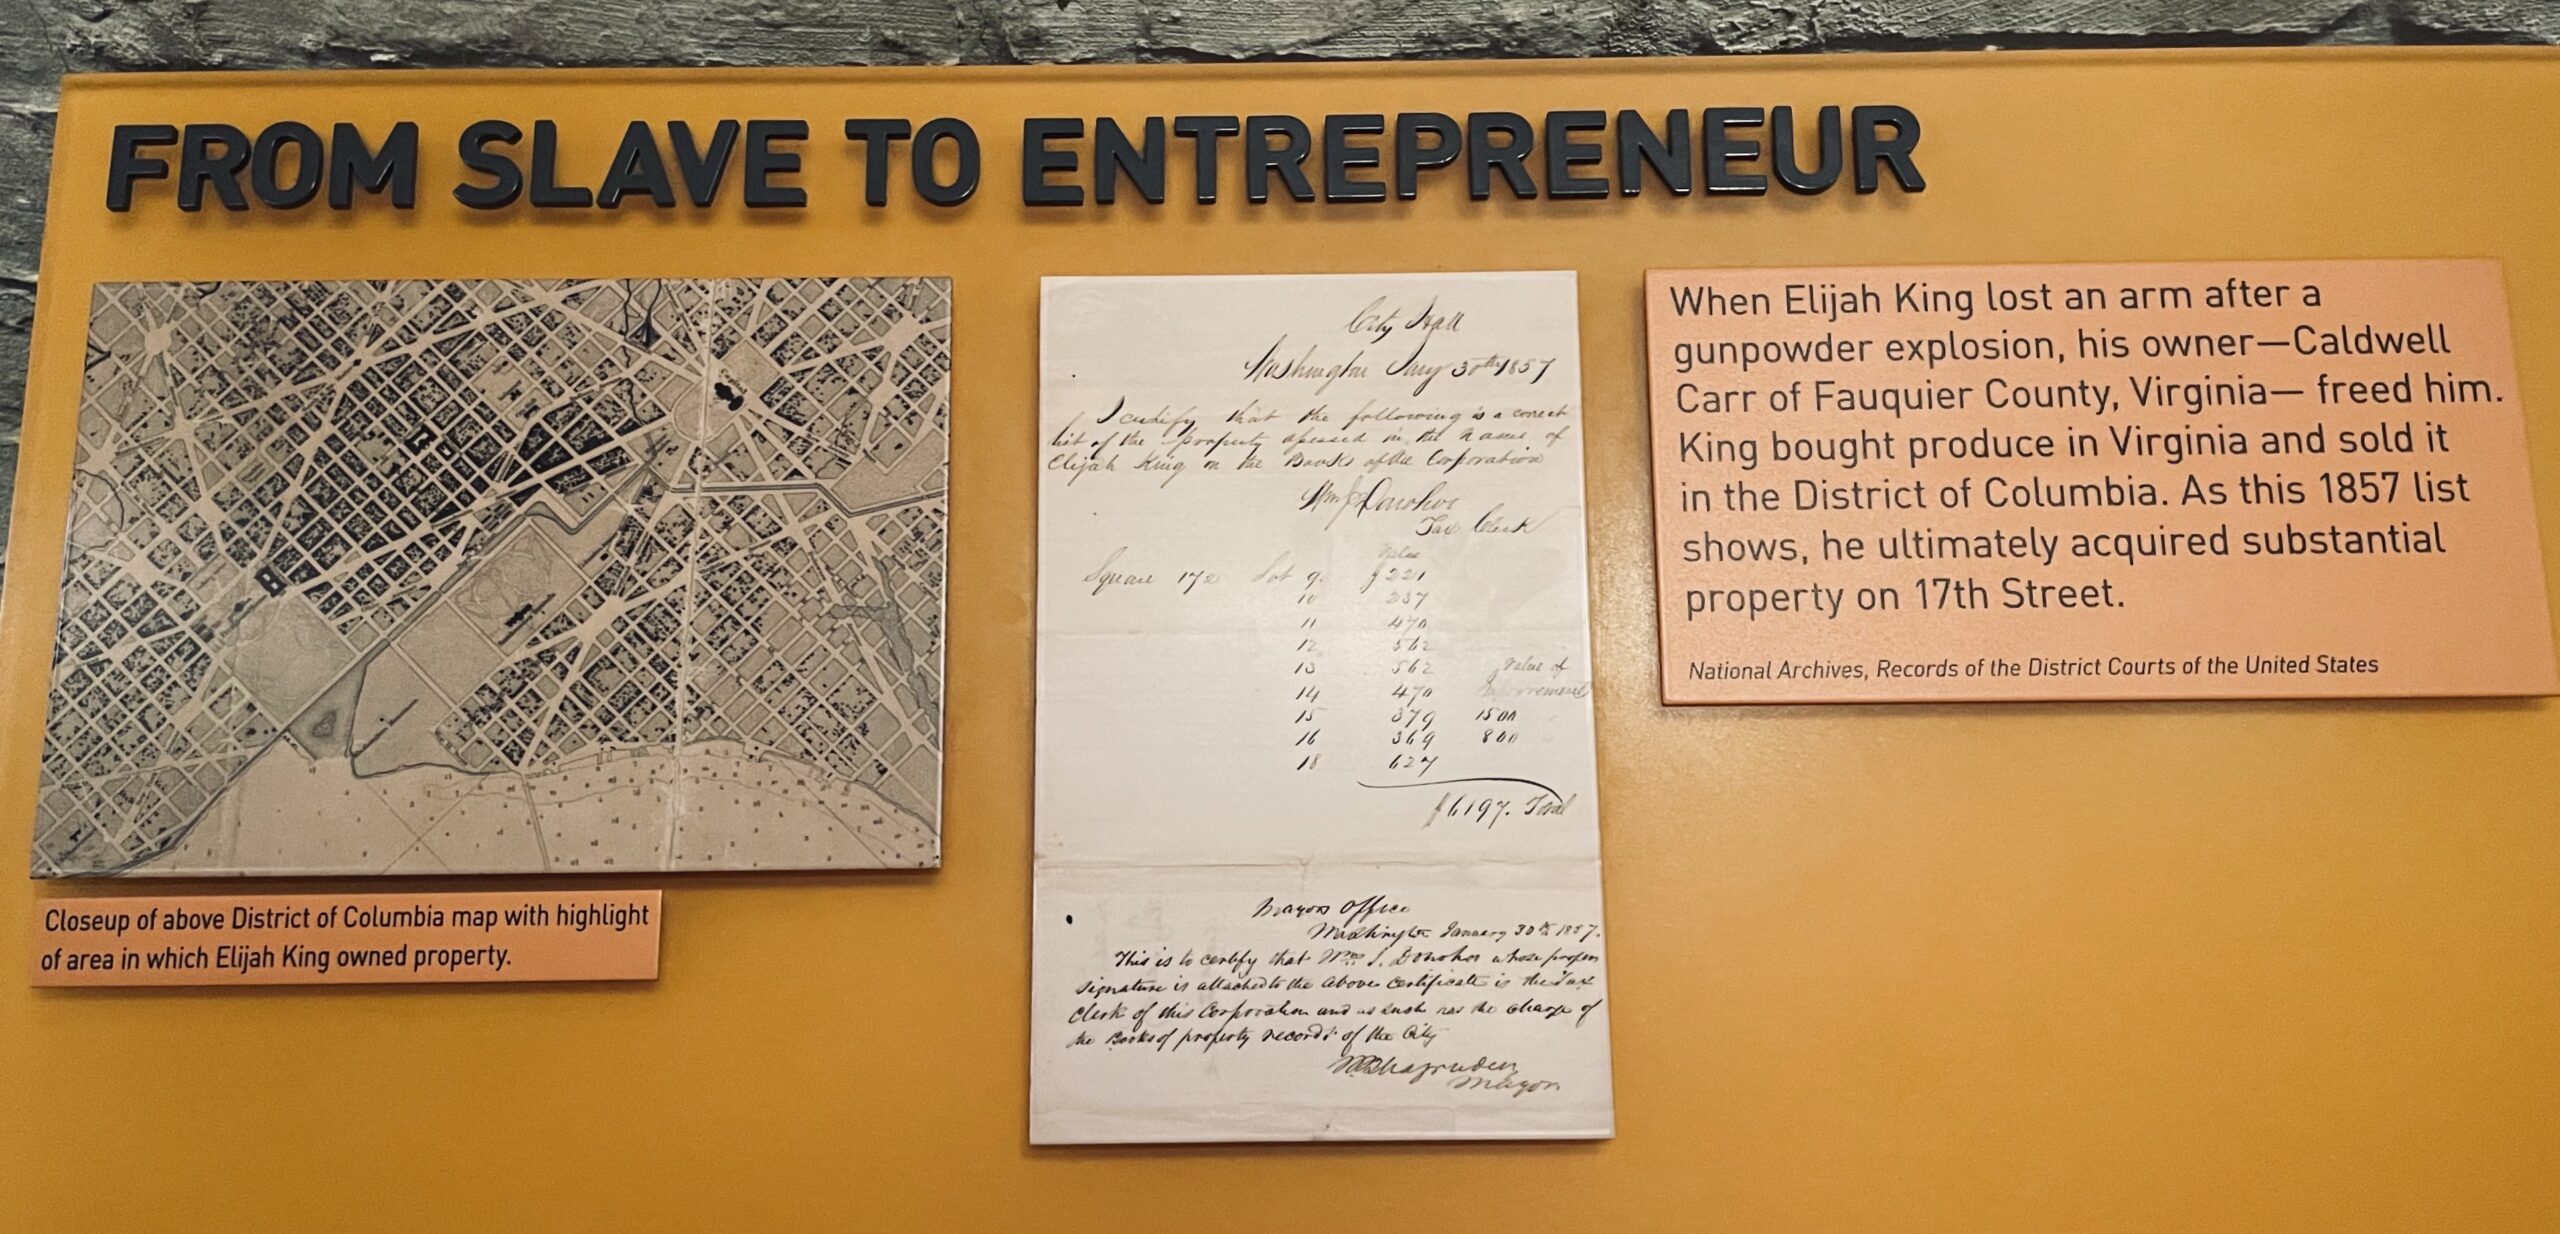 FROM SLAVE TO ENTREPRENEUR
Closeup of above District of Columbia map with highlight
of area in which Elijah King owned property.
City Hall
Washington Jany 30th 1857
I certify that the following is a correct
list of the property assessed in the name of
Elijah King on the Books of the Corporation
Wm J Donohoo
Tax Clerk
Value
Square Lot 9. $221
10
11 470
12 562
13 562 Value of
14 470 improvement
15 379 1500
16 369 800
18 627
$6197. Total
Mayors Office
Washington January 30th 1857.
This is to certify that Wm J. Donohoo whose proper
signature is attached to the above certificate is the Tax
Clerk of this Corporation and as such has the charge of
the Books of property records of the City
Mayor
When Elijah King lost an arm after a
gunpowder explosion, his owner—Caldwell
Carr of Fauquier County, Virginia— freed him.
King bought produce in Virginia and sold it
in the District of Columbia. As this 1857 list
shows, he ultimately acquired substantial
property on 17th Street.
National Archives, Records of the District Courts of the United States